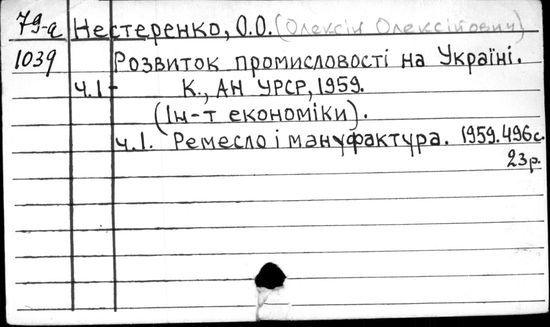 79-а Нестеренко, О.О. (Олексій Олексійович)
1039 Розвиток промисловості на Україні.
ч.I- К., АН УРСР, 1959.
(Ін-т економіки).
ч.I. Ремесло і мануфактура. 1959. 496 с.
23 р.